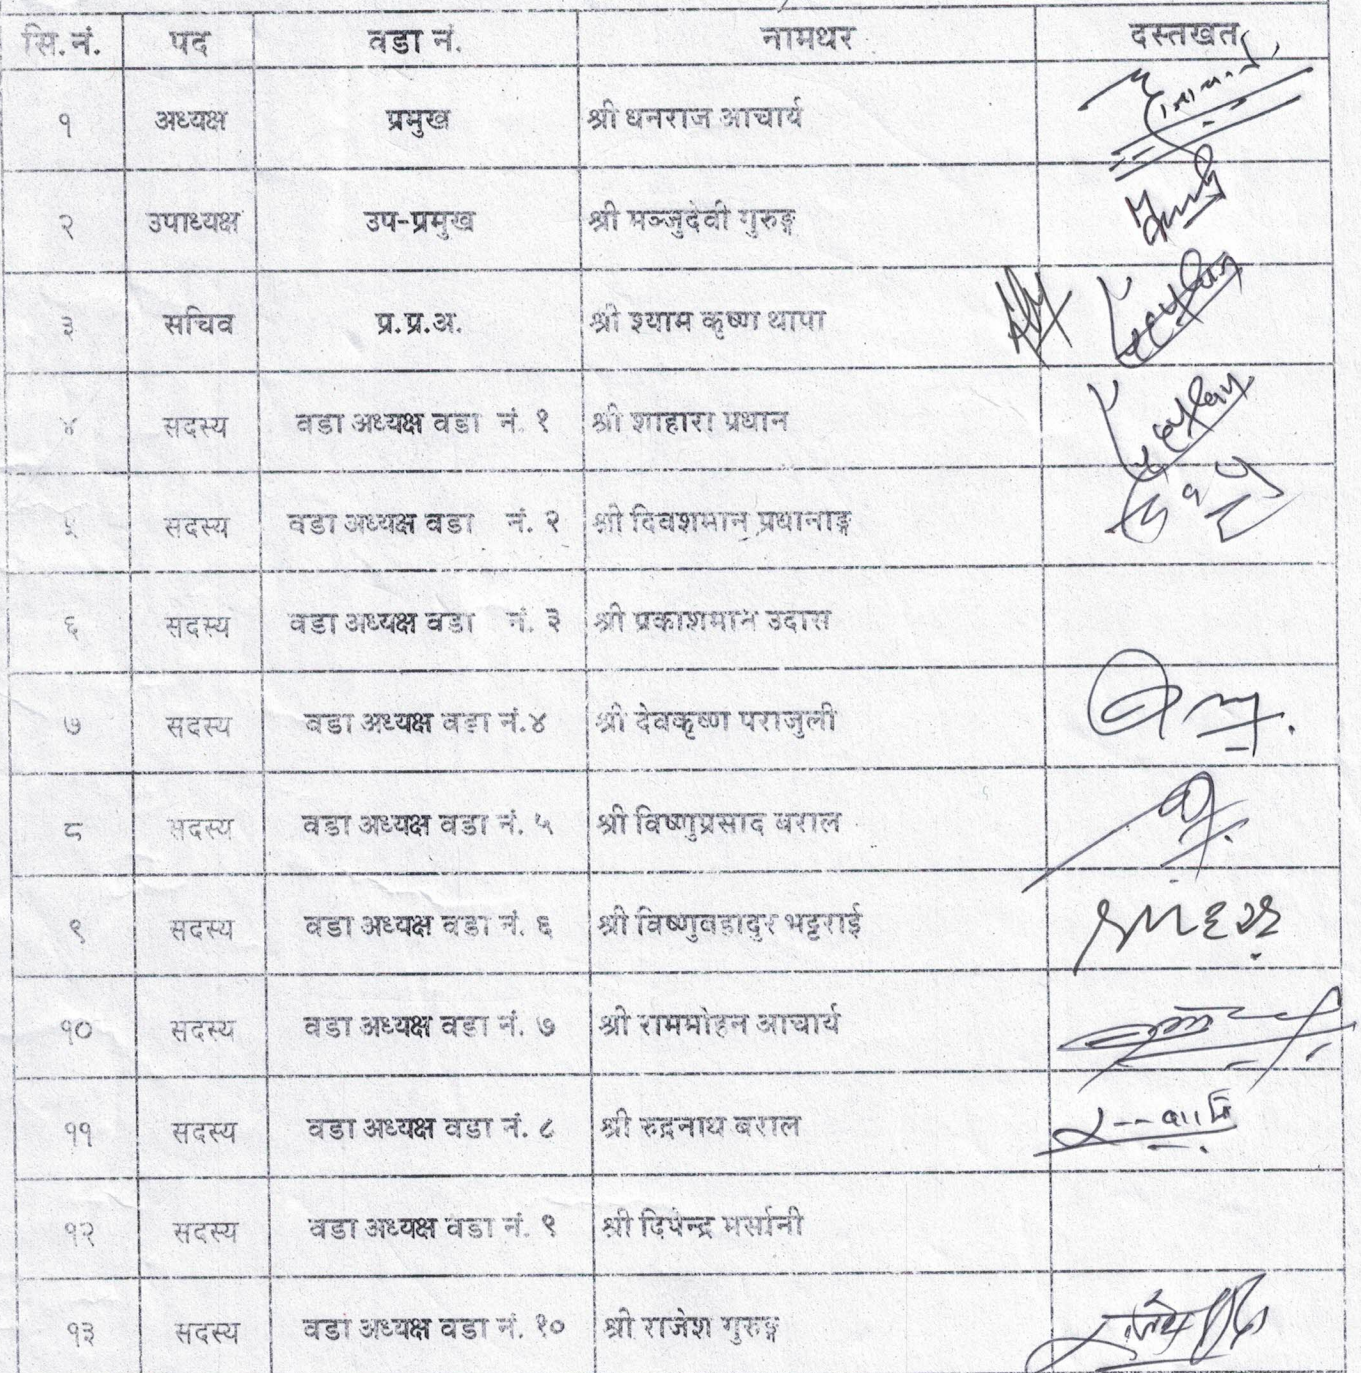 सि.नं. पद वडा नं. नामथर दस्तखत
१ अध्यक्ष प्रमुख श्री धनराज आचार्य
२ उपाध्यक्ष उप-प्रमुख श्री मञ्जुदेवी गुरुङ्ग
३ सचिव प्र.प्र.अ. श्री श्याम कृष्ण थापा
४ सदस्य वडा अध्यक्ष वडा नं. १ श्री शाहारा प्रधान
५ सदस्य वडा अध्यक्ष वडा नं. २ श्री दिवशमान प्रधानाङ्ग
६ सदस्य वडा अध्यक्ष वडा नं. ३ श्री प्रकाशमान उदास
७ सदस्य वडा अध्यक्ष वडा नं.४ श्री देवकृष्ण पराजुली
८ सदस्य वडा अध्यक्ष वडा नं. ५ श्री विष्णुप्रसाद बराल
९ सदस्य वडा अध्यक्ष वडा नं. ६ श्री विष्णुवहादुर भट्टराई
१० सदस्य वडा अध्यक्ष वडा नं. ७ श्री राममोहन आचार्य
११ सदस्य वडा अध्यक्ष वडा नं. ८ श्री रुद्रनाथ बराल
१२ सदस्य वडा अध्यक्ष वडा नं. ९ श्री दिपेन्द्र मर्सानी
१३ सदस्य वडा अध्यक्ष वडा नं. १० श्री राजेश गुरुङ्ग